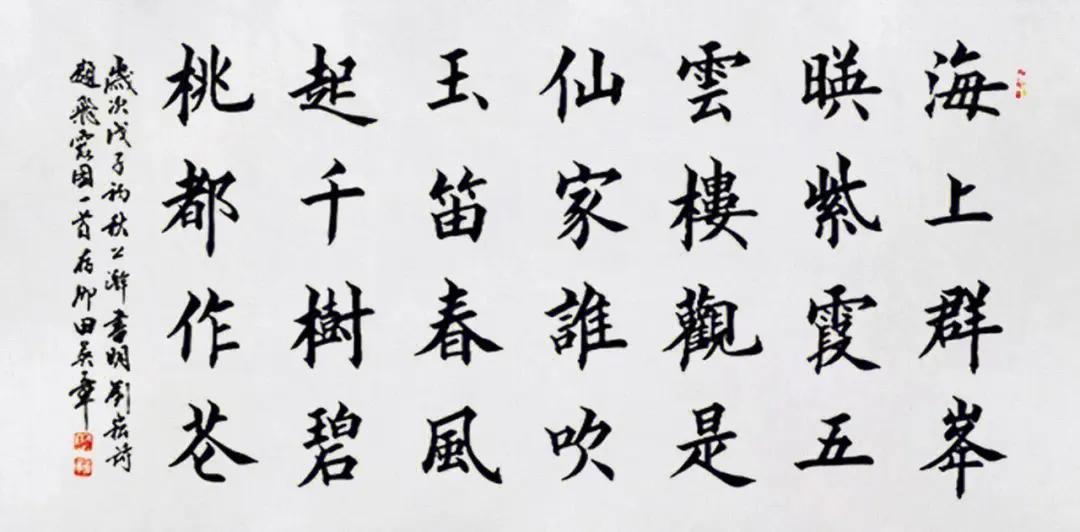 海上群峯
暎紫霞五
雲樓觀是
仙家誰吹
玉笛春風
起千樹碧
桃都作花
歲次戊子初秋上澣書明劉崧詩
題飛霞图一首存卿田英章